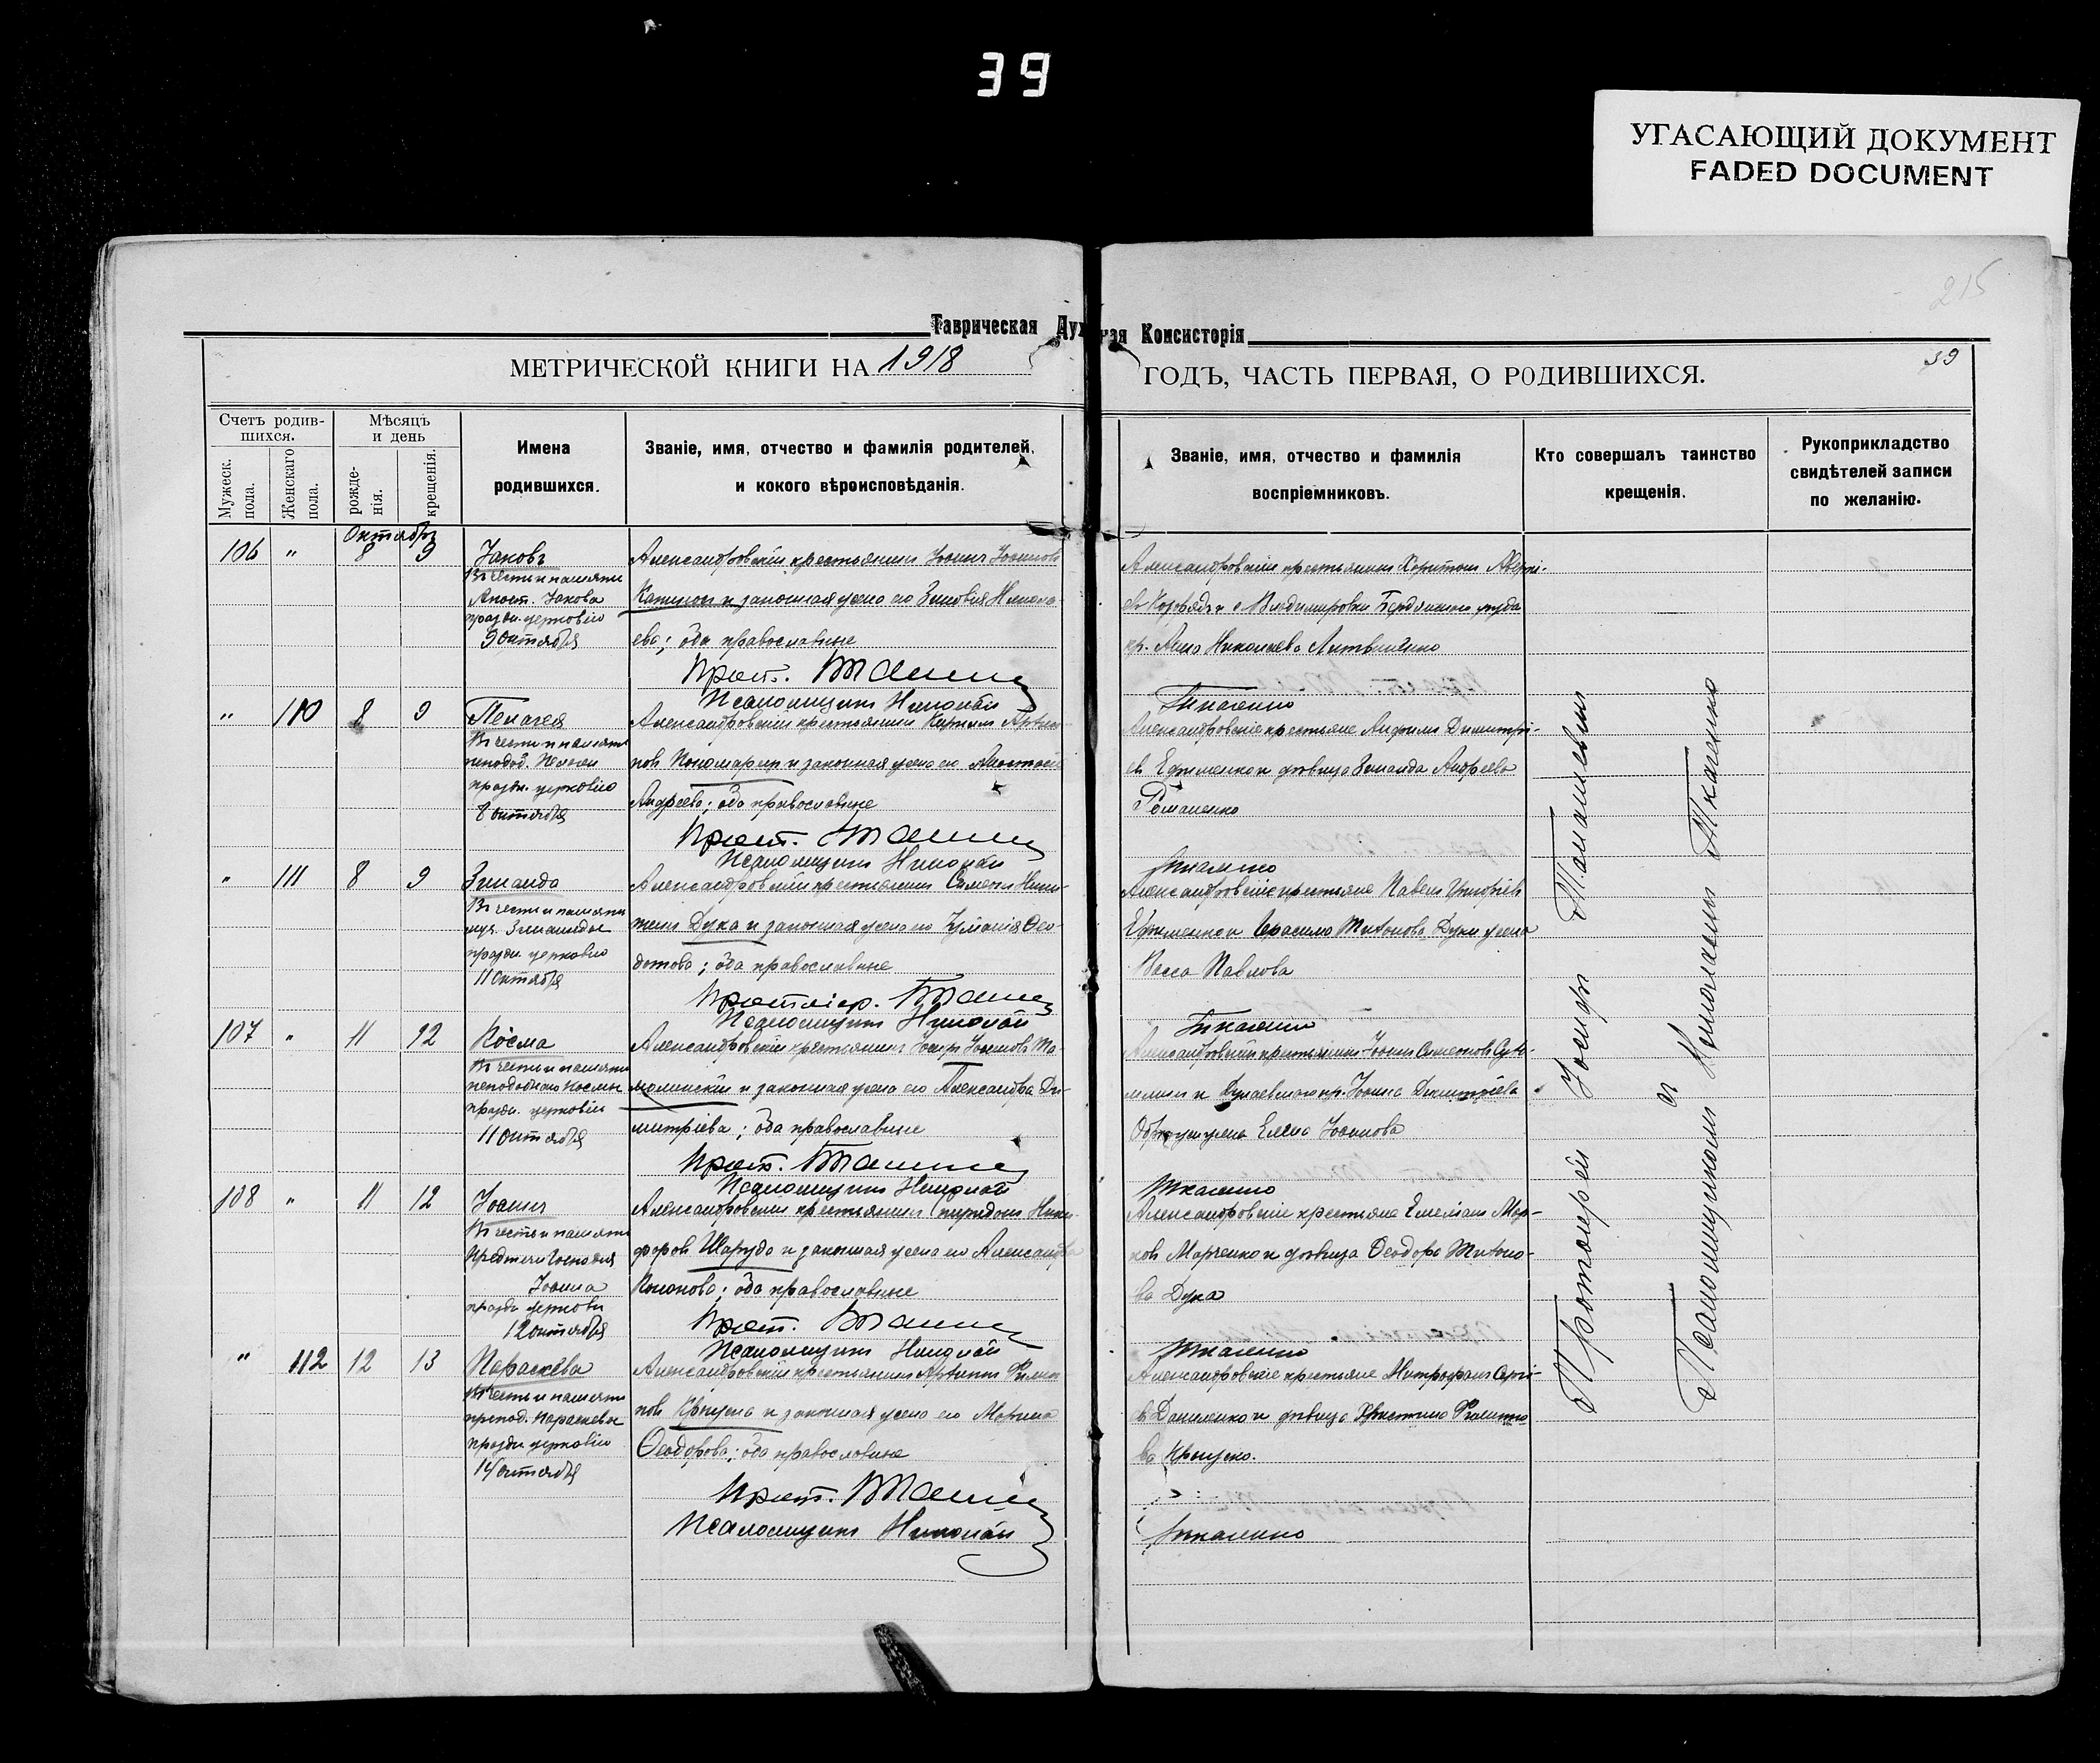 39
УГАСАЮЩИЙ ДОКУМЕНТ
FADED DOCUMENT
215
Таврическая Дух
кая Консисторія
МЕТРИЧЕСКОЙ КНИГИ НА 1918
ГОДЪ, ЧАСТЬ ПЕРВАЯ, О РОДИВШИХСЯ.
39
Счетъ родив-
шихся.
Мужеск.
пола.
Женскаго
пола.
Мѣсяцъ
и день
рожде-
нія.
крещенія.
Имена
родившихся.
Званіе, имя, отчество и фамилія родителей,
и кокого вѣроисповѣданія.
Званіе, имя, отчество и фамилія
воспріемниковъ.
Кто совершалъ таинство
крещенія.
Рукоприкладство
свидѣтелей записи
по желанію.
Октябрь
106 " 8 9
Іаковъ
Въ честь и память
Апост. Іакова
праздн. церковію
9 октября
Александровскій крестьянинъ Іоаннъ Іоанновъ
и законная жена его Зиновія Никола-
ева; оба православные
Прот.
Псаломщикъ Николай
Александровскій крестьянинъ Харитонъ
и с. Владимировки Бердянскаго уѣзда
кр. Анна Николаева Литвиненко
Ткаченко
" 110 8 9
Пелагея
Въ честь и память
преподоб. Пелагеи
праздн. церковію
8 октября
Александровскій крестьянинъ
новъ Пономарь и законная жена его Анастасія
Андреева; оба православные
Прот.
Псаломщикъ Николай
Александровскіе крестьяне Димитрі-
евъ Ефименко и дѣвица Зинаида Андреева
Романенко
Ткаченко
" 111 8 9
Зинаида
Въ честь и память
муч. Зинаиды
праздн. церковію
11 октября
Александровскій крестьянинъ Симеонъ
Дука и законная жена его Іуліанія Ѳео-
дотова; оба православные
Протоіер.
Псаломщикъ Николай
Александровскіе крестьяне Павелъ
Ефименко и Герасима Титонова Дуки жена
Васса Павлова
Ткаченко
107 " 11 12
Косма
Въ честь и память
преподобнаго Космы
праздн. церковію
11 октября
Александровскій крестьянинъ Іосифъ Іоанновъ
и законная жена его Александра Ди-
митріева; оба православные
Прот.
Псаломщикъ Николай
Александровскій крестьянинъ Іоаннъ Симеоновъ
и кр. Іоанна Димитріева
жена Елена Іоаннова
Ткаченко
108 " 11 12
Іоаннъ
Въ честь и память
Предтечи Господня
Іоанна
праздн. церковію
12 октября
Александровскій крестьянинъ Спиридонъ Ники-
форовъ Шаруда и законная жена его Александра
Кононова; оба православные
Прот.
Псаломщикъ Николай
Александровскіе крестьяне Емеліанъ Мар-
ковъ Марченко и дѣвица Ѳеодора Титоно-
ва Дука
Ткаченко
" 112 12 13
Параскева
Въ честь и память
препод. Параскевы
праздн. церковію
14 октября
Александровскій крестьянинъ Филип-
повъ и законная жена его Марина
Ѳеодорова; оба православные
Прот.
Псаломщикъ Николай
Александровскіе крестьяне Митрофанъ Сергі-
евъ Даниленко и дѣвица Христина Филиппо-
ва
Ткаченко
Протоіерей Іосифъ
съ Псаломщикомъ Николаемъ Ткаченко